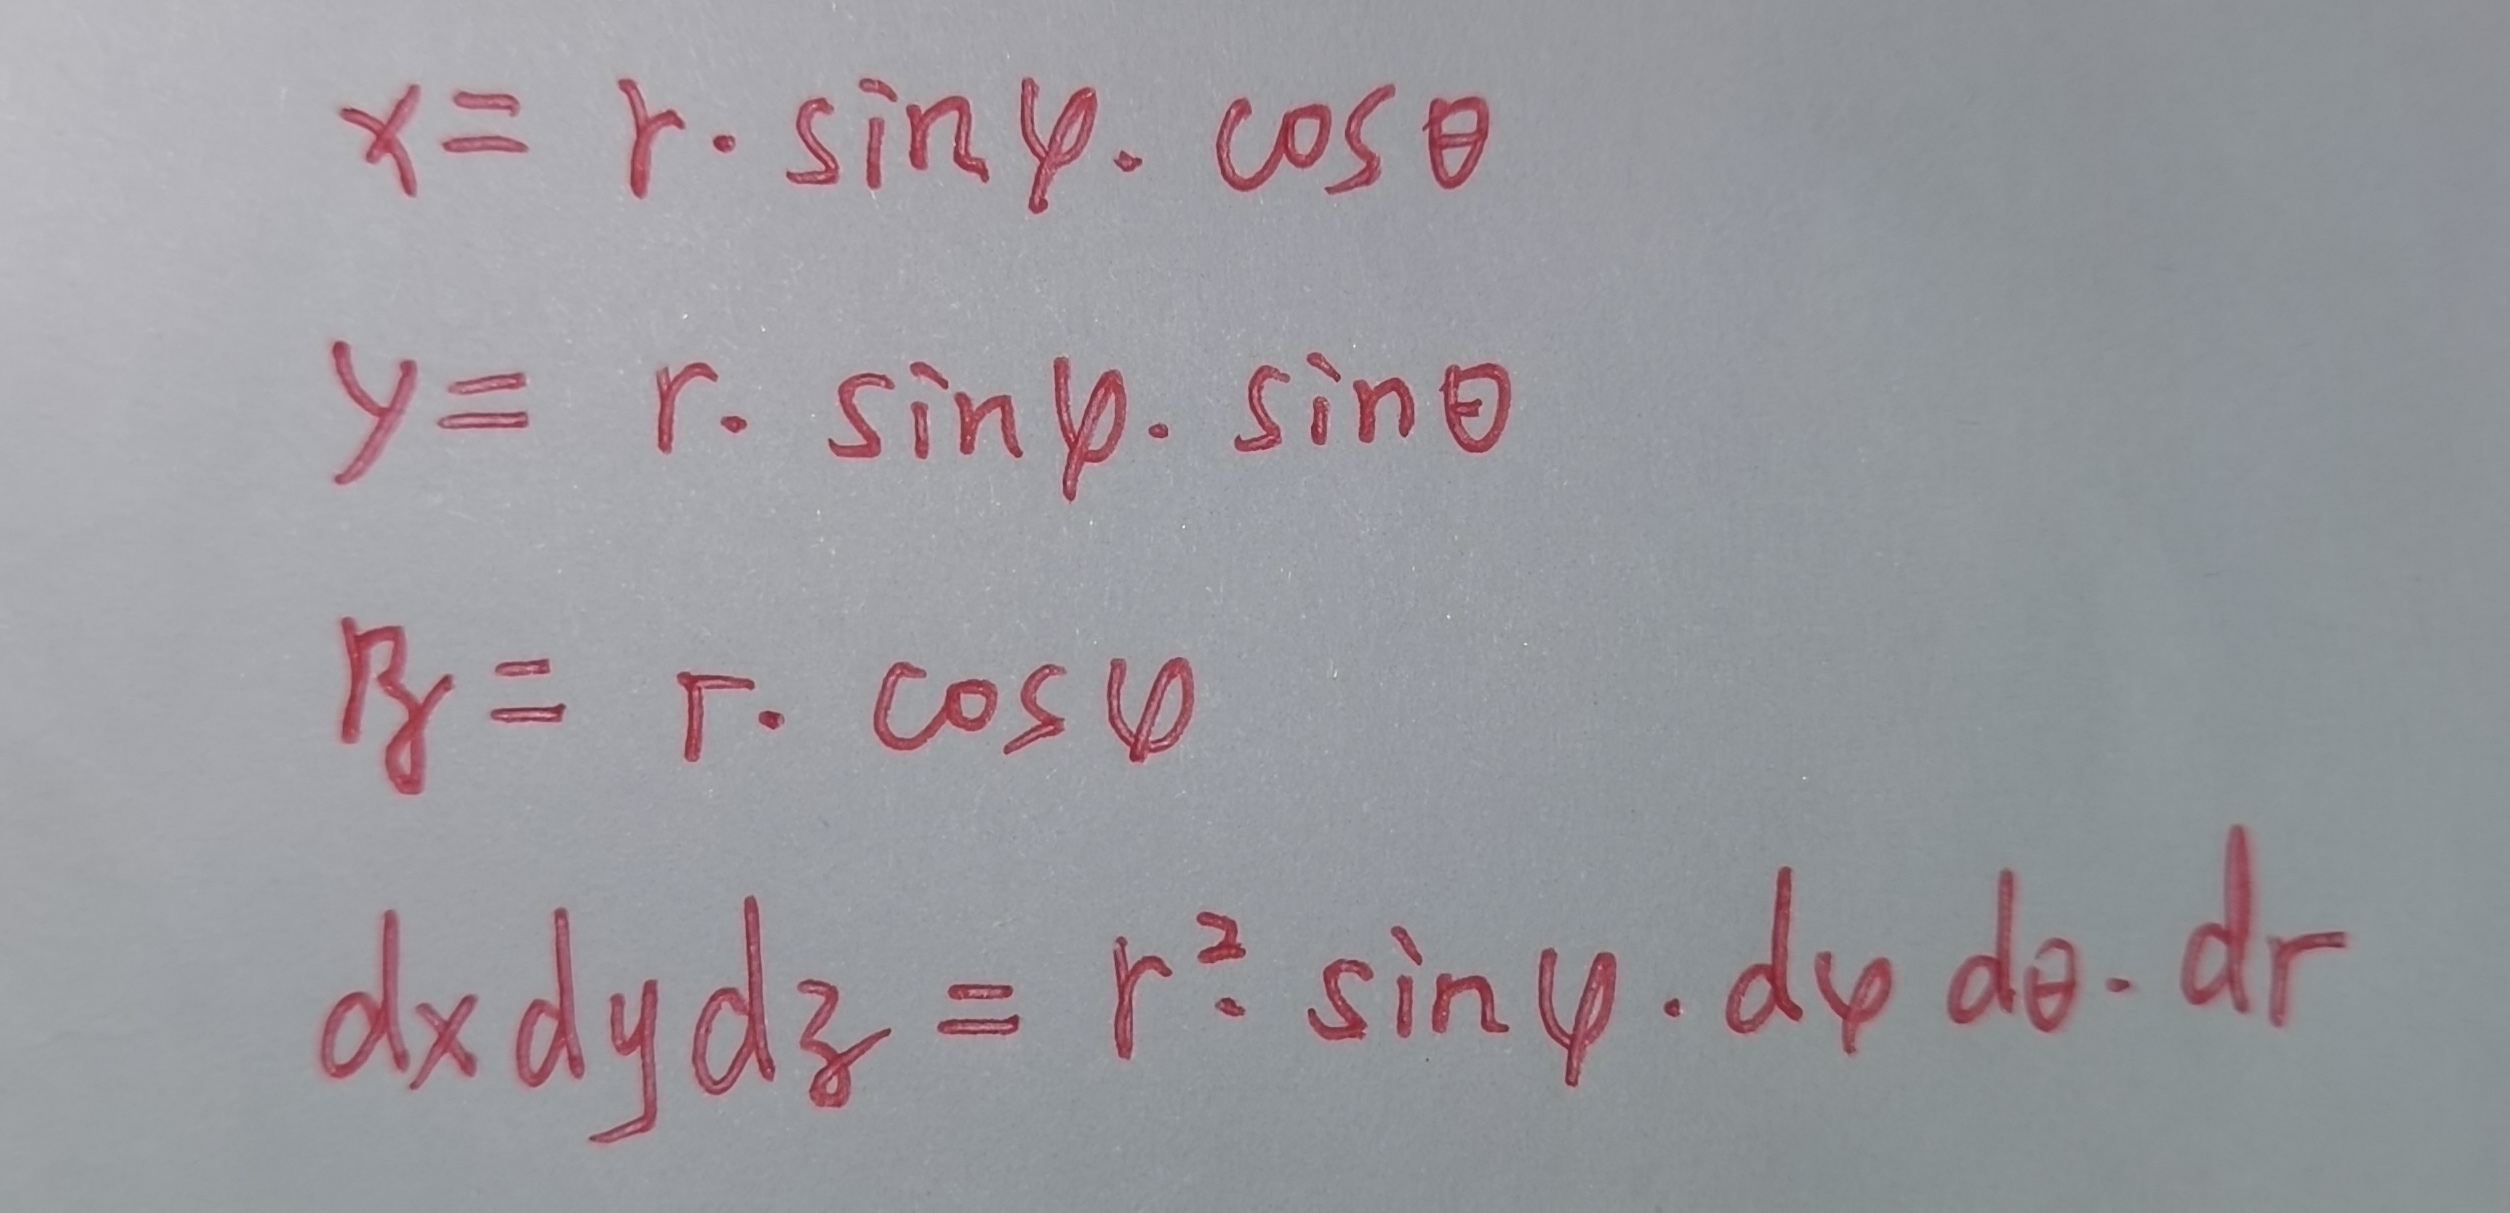 x = r · sin φ · cos θ
y = r · sin φ · sin θ
z = r · cos φ
dx dy dz = r² · sin φ · dφ dθ · dr